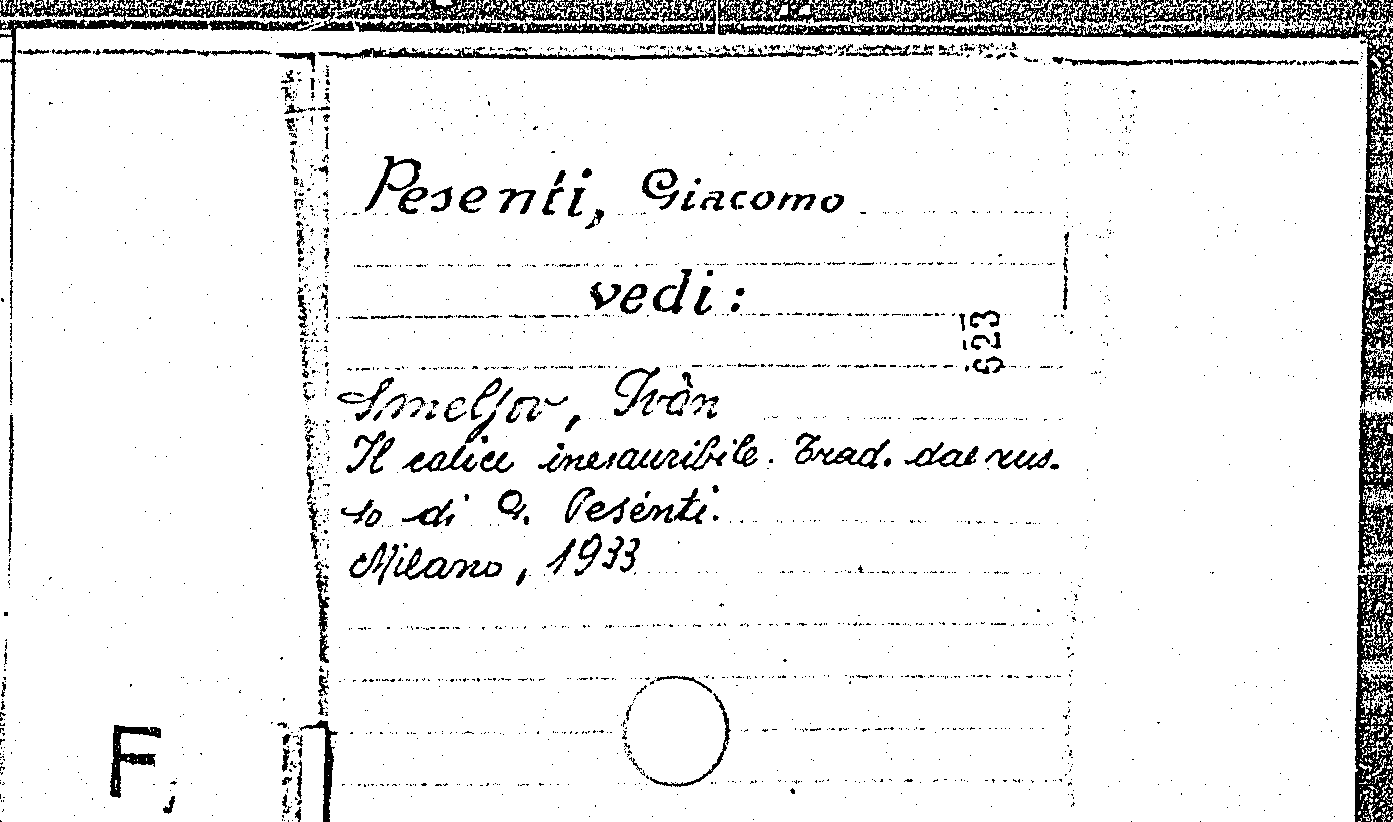 Pesenti, Giacomo
vedi:
623
Smeljov, Ivàn
Il calice inesauribile. Trad. dal rus-
so di G. Pesenti.
Milano, 1933
F,